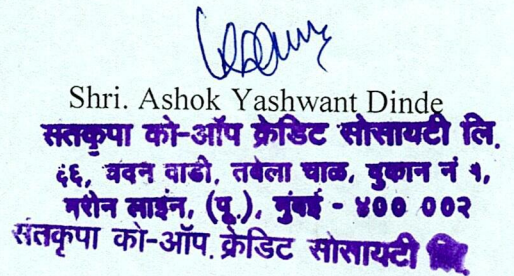 Shri. Ashok Yashwant Dinde
सतकृपा को-ऑप क्रेडिट सोसायटी लि.
६६, चदन वाडी, तबेला चाळ, दुकान नं १,
मरीन लाईन, (पू.), मुंबई - ४०० ००२
संतकृपा को-ऑप. क्रेडिट सोसायटी